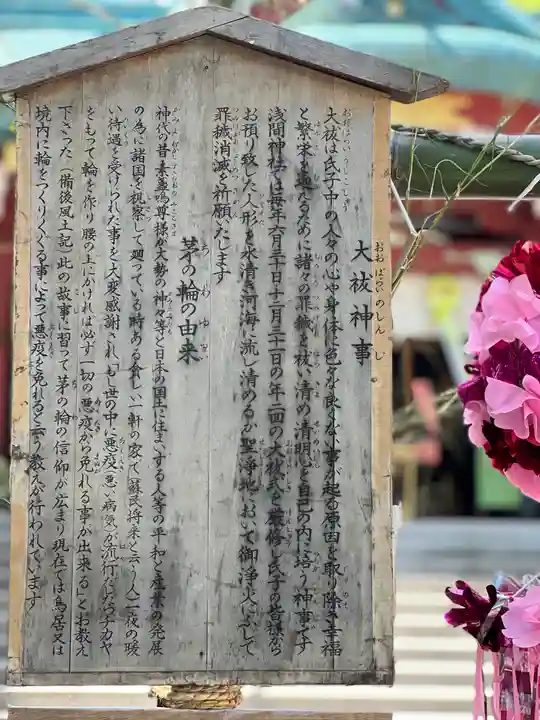 大祓神事
大祓は氏子中の人々の心や身体に色々な良くない事が起る原因を取り除き幸福
と繁栄を進むために諸々の罪穢を祓い清め清明心を自己の内に培う神事です
浅間神社では毎年六月三十日十二月三十一日の年二回の大祓式を厳修し氏子の皆様から
お預り致した人形を水清き河海に流し清めるか聖浄地において御浄火に ぶして
罪穢消滅を祈願いたします
茅の輪の由来
神代の昔素盞嗚尊様が大勢の神々等と日本の国土に住まいする人等の平和と産業の発展
の為に諸国を視察して廻っている時ある貧しい一軒の家で蘇民将来と云う人に一夜の暖
い待遇を受けられた事を大変感謝され「もし世の中に悪疫悪い病気が流行したらチカヤ
をもって輪を作り腰の上にかければ必ず一切の悪疫から免れる事が出来る」とお教え
下さった（備後風土記）此の故事に習って茅の輪の信仰が広まり現在では鳥居又は
境内に輪をつくりくぐる事によって悪疫を免れると云う教えが行われています